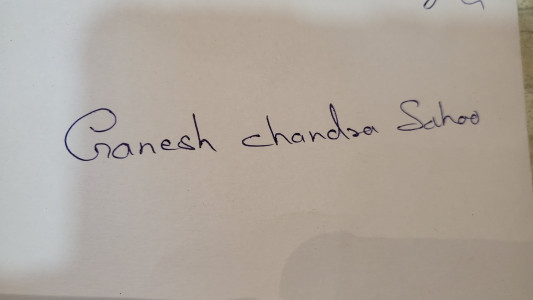 Ganesh chandra Sahoo